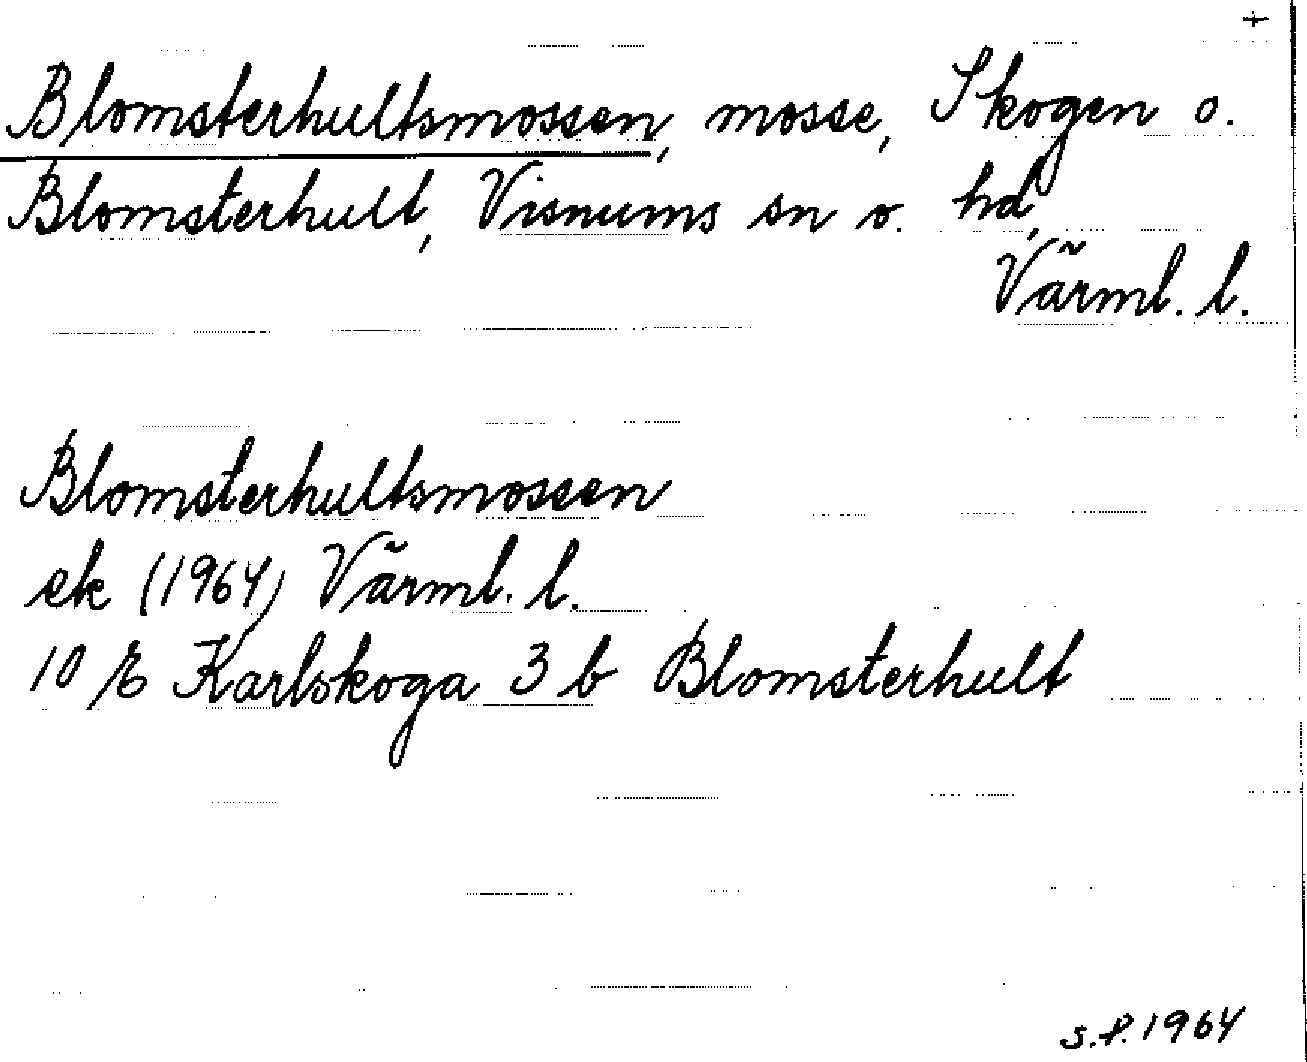 +
Blomsterhultsmossen, mosse, Skogen o.
Blomsterhult, Visnums sn o. hd,
Värml. l.
Blomsterhultsmossen
ek (1964) Värml. l.
10 E Karlskoga 3 b Blomsterhult
S.P. 1964